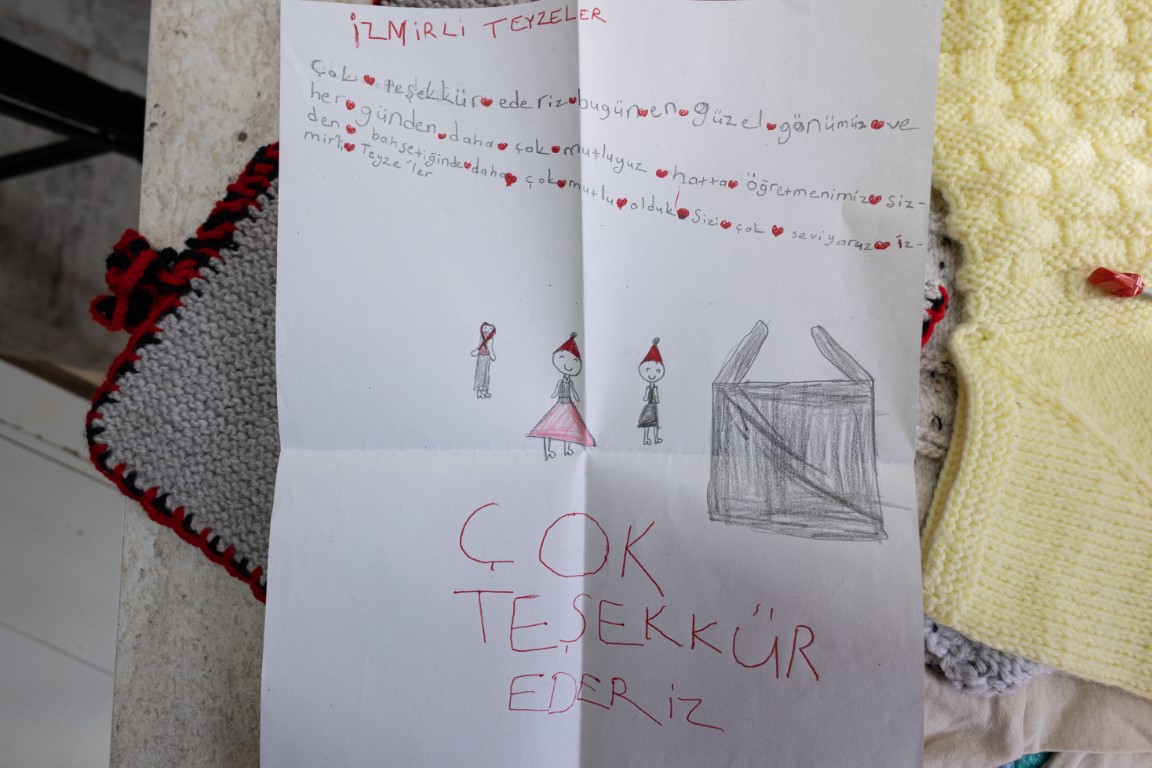 İZMİRLİ TEYZELER
Çok teşekkür ederiz bugün en güzel gönümüz ve
her günden daha çok mutluyuz hatta öğretmenimiz siz-
den bahsetiğinde daha çok mutlu olduk Sizi çok seviyoruz iz-
mirli Teyze'ler
ÇOK
TEŞEKKÜR
EDERİZ